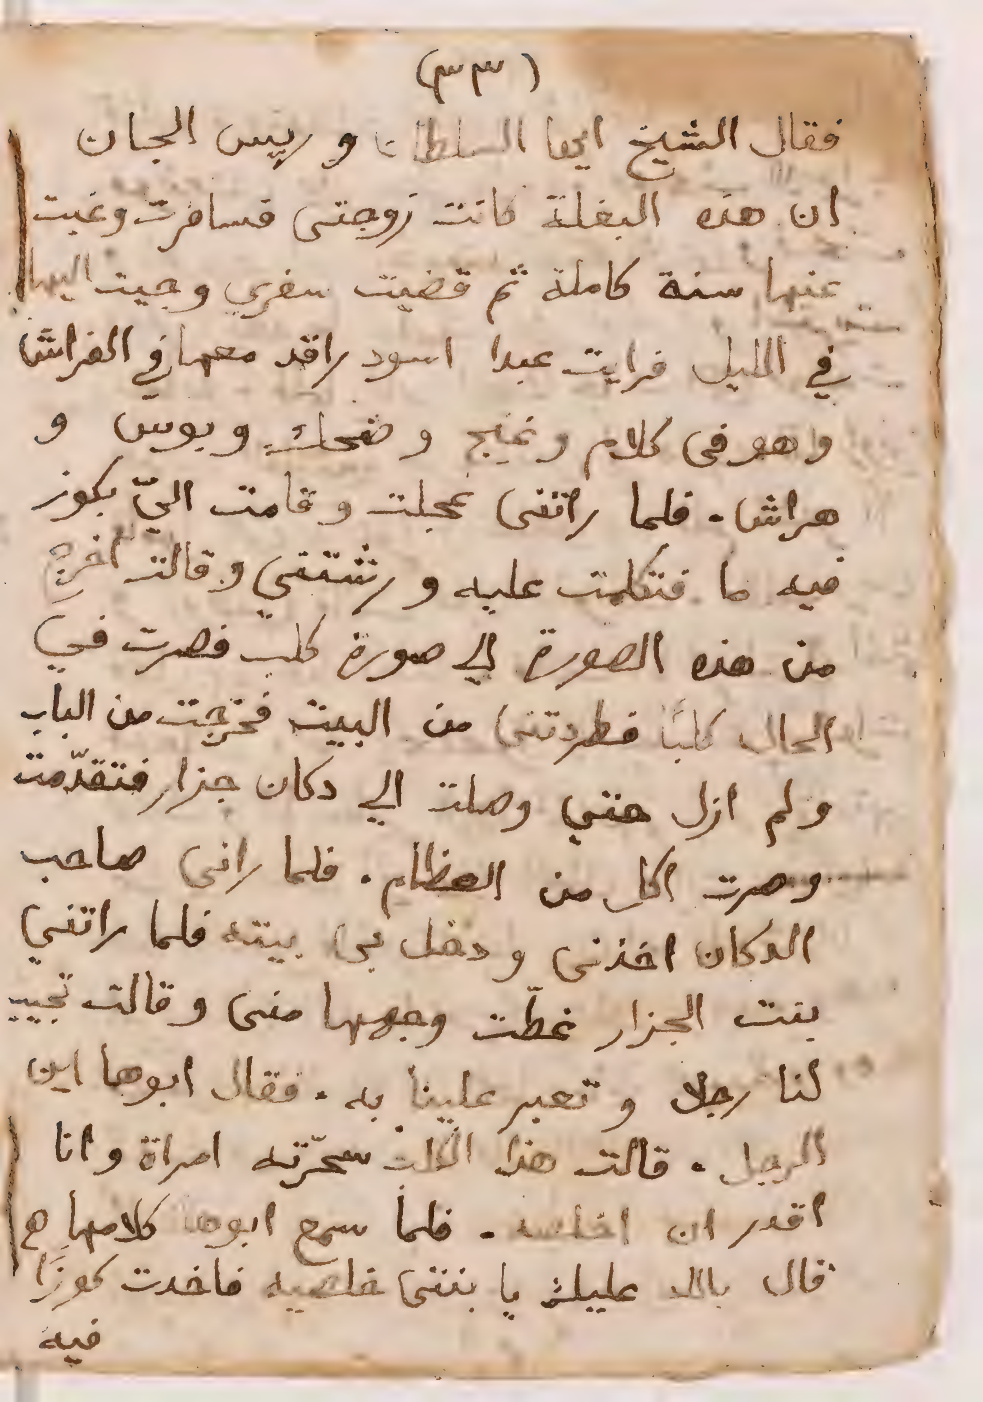 (٣٣)
فقال الشيخ ايها السلطان و رييس الجان
ان هذه البغلة كانت زوجتى فسافرت وغبت
عنها سنة كاملة ثم قضيت سفري وجيت اليها
في الليل فرايت عبدا اسود راقد معها في الفراش
وهو فى كلام وغنج وضحك وبوس و
هراش. فلما راتنى عجلت وقامت اليّ بكوز
فيه ما فتكلمت عليه و رشتني وقالت اخرج
من هذه الصورة الي صورة كلب فصرت في
الحال كلبًا فطردتنى من البيت فخرجت من الباب
ولم ازل حتي وصلت الي دكان جزار فتقدّمت
وصرت اكل من العظام. فلما رانى صاحب
الدكان اخذنى و دخل بى بيته فلما راتني
بنت الجزار غطّت وجهها منى وقالت تجيب
لنا رجلا و تعبر علينا به. فقال ابوها اين
الرجل. قالت هذا الكلب سحّرته امراة وانا
اقدر ان اخلصه. فلما سمع ابوها كلامها
قال بالله عليك يا بنتى خلصيه فاخدت كوزًا
فيه